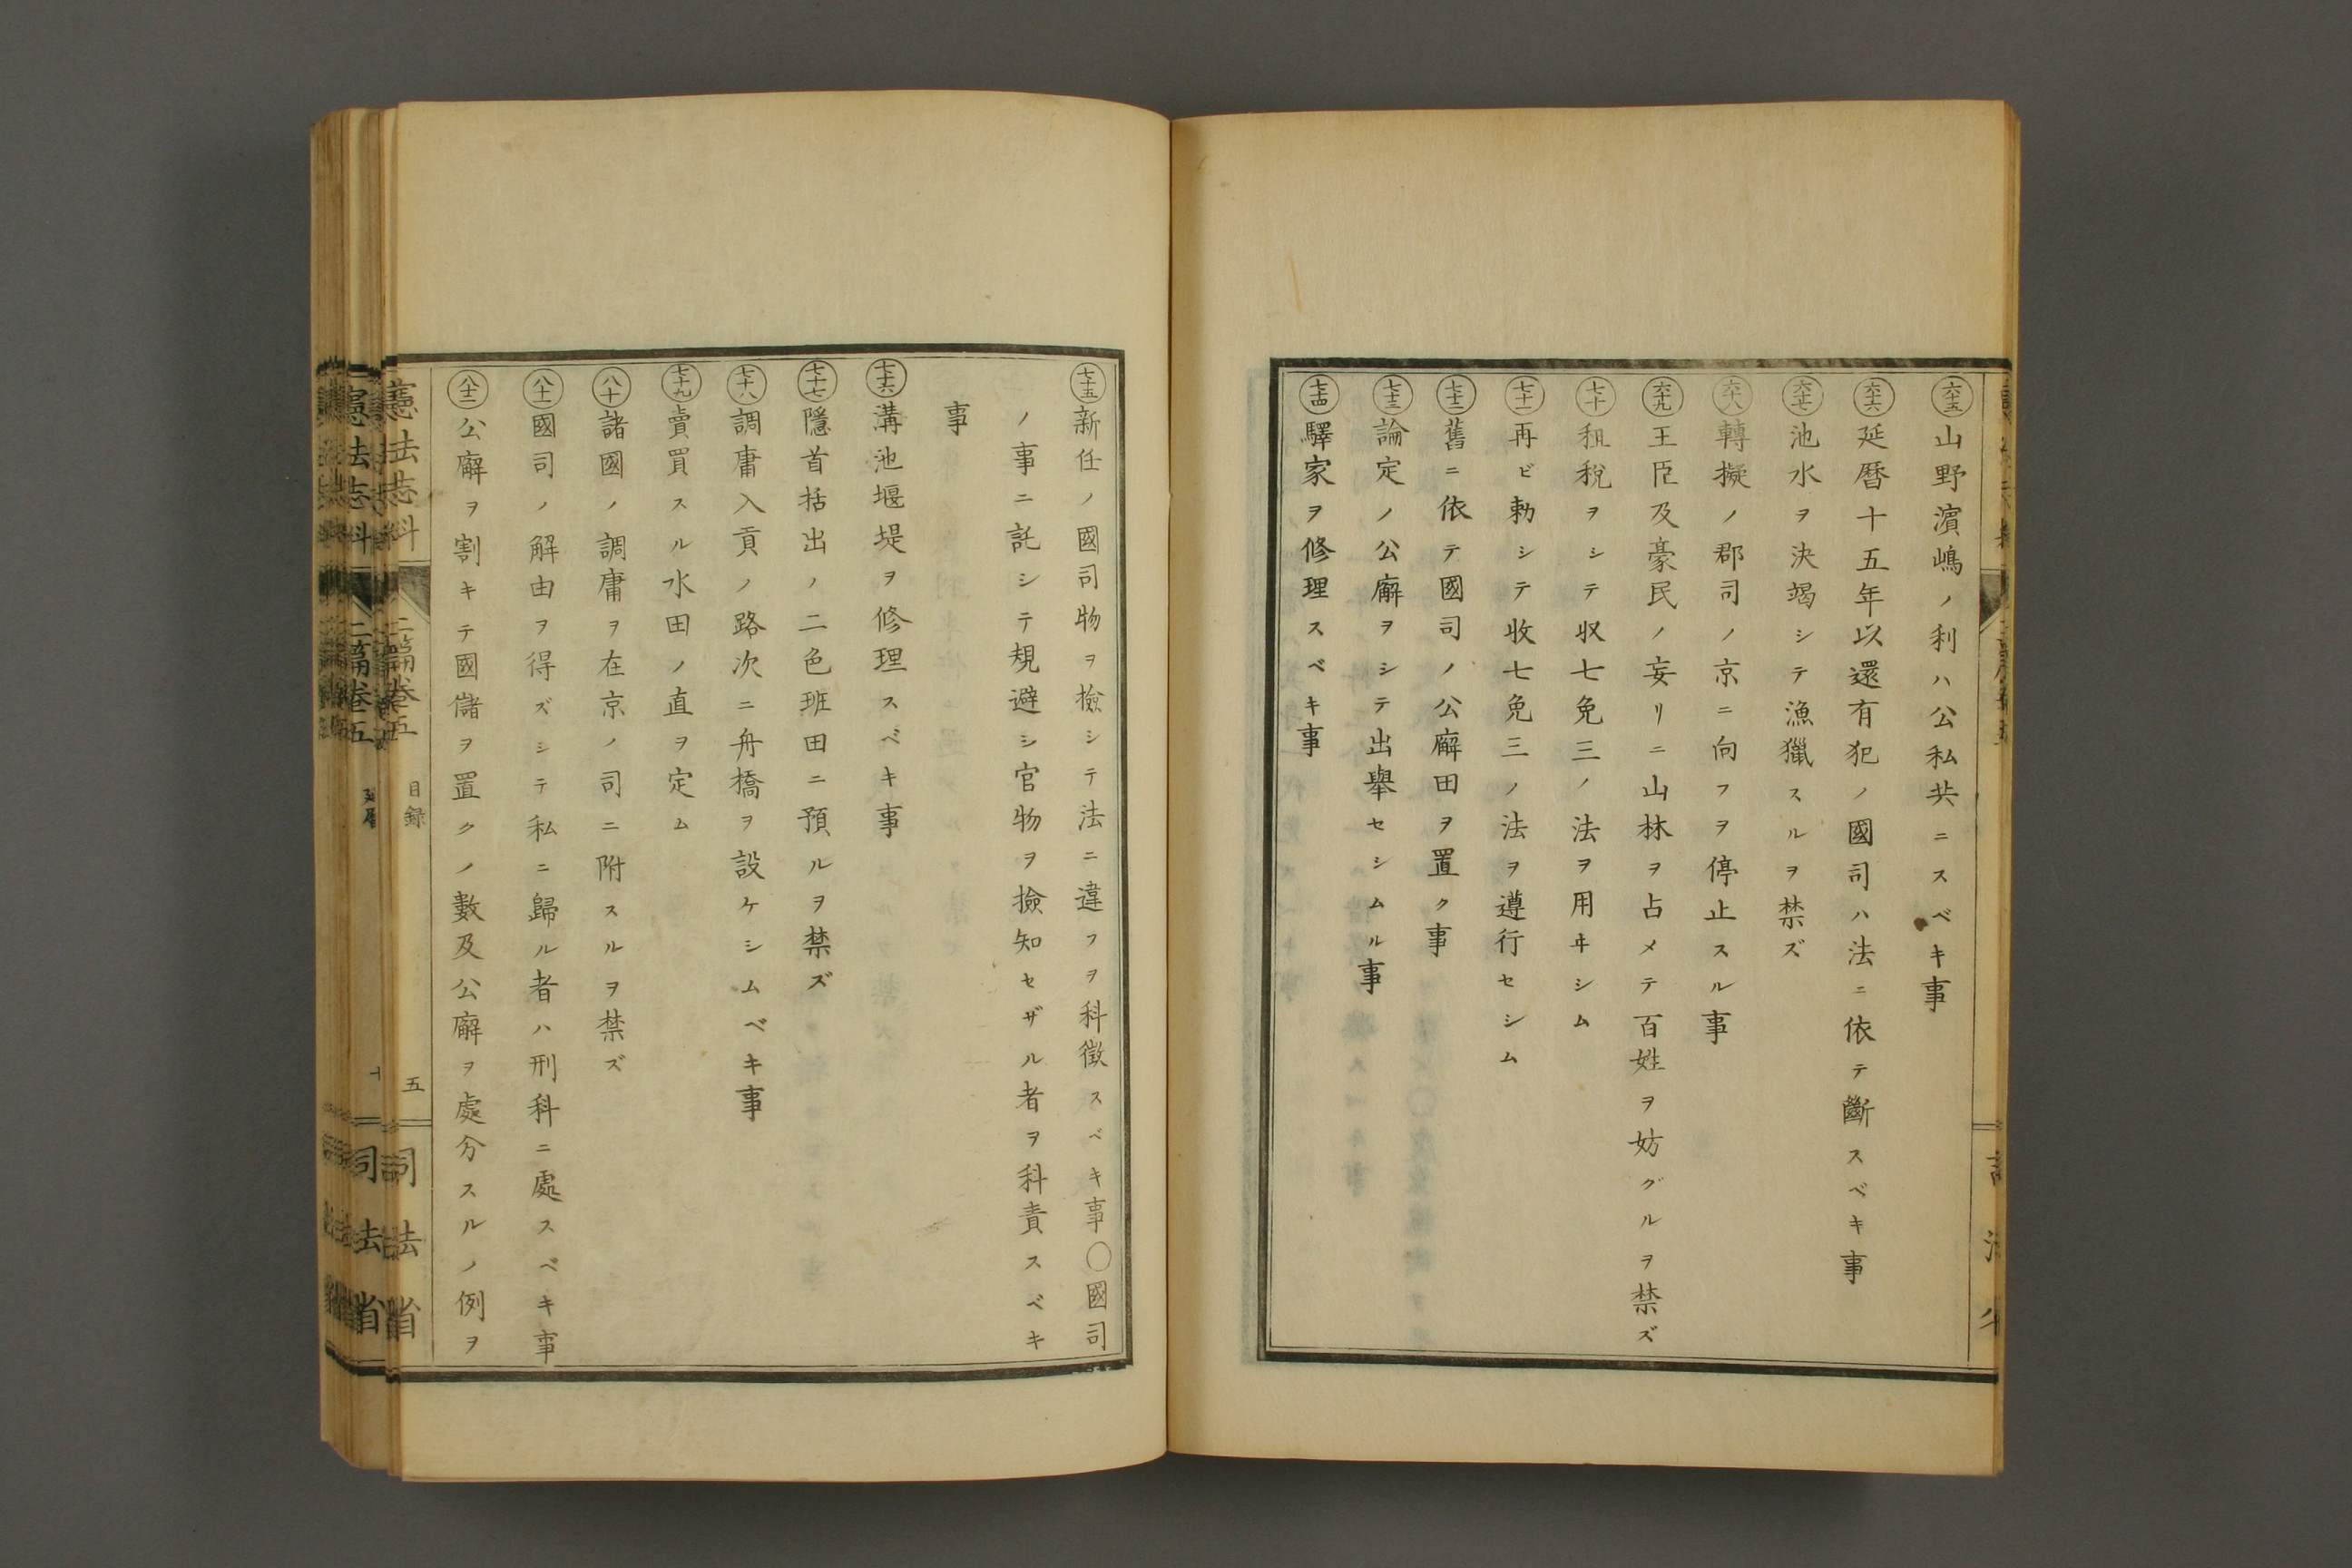 六十五 山野濱嶋ノ利ハ公私共ニスベキ事
六十六 延暦十五年以還有犯ノ國司ハ法ニ依テ斷スベキ事
六十七 池水ヲ決竭シテ漁獵スルヲ禁ズ
六十八 轉擬ノ郡司ノ京ニ向フヲ停止スル事
六十九 王臣及豪民ノ妄リニ山林ヲ占メテ百姓ヲ妨グルヲ禁ズ
七十 租税ヲシテ収七免三ノ法ヲ用ヰシム
七十一 再ビ勅シテ收七免三ノ法ヲ遵行セシム
七十二 舊ニ依テ國司ノ公廨田ヲ置ク事
七十三 論定ノ公廨ヲシテ出擧セシムル事
七十四 驛家ヲ修理スベキ事
七十五 新任ノ國司物ヲ撿シテ法ニ違フヲ科徴スベキ事〇國司
ノ事ニ託シテ規避シ官物ヲ撿知セザル者ヲ科責スベキ
事
七十六 溝池堰堤ヲ修理スベキ事
七十七 隱首括出ノ二色班田ニ預ルヲ禁ズ
七十八 調庸入貢ノ路次ニ舟橋ヲ設ケシムベキ事
七十九 賣買スル水田ノ直ヲ定ム
八十 諸國ノ調庸ヲ在京ノ司ニ附スルヲ禁ズ
八十一 國司ノ解由ヲ得ズシテ私ニ歸ル者ハ刑科ニ處スベキ事
八十二 公廨ヲ割キテ國儲ヲ置クノ數及公廨ヲ處分スルノ例ヲ
憲法志料 二篇卷五 目録 五 司法省